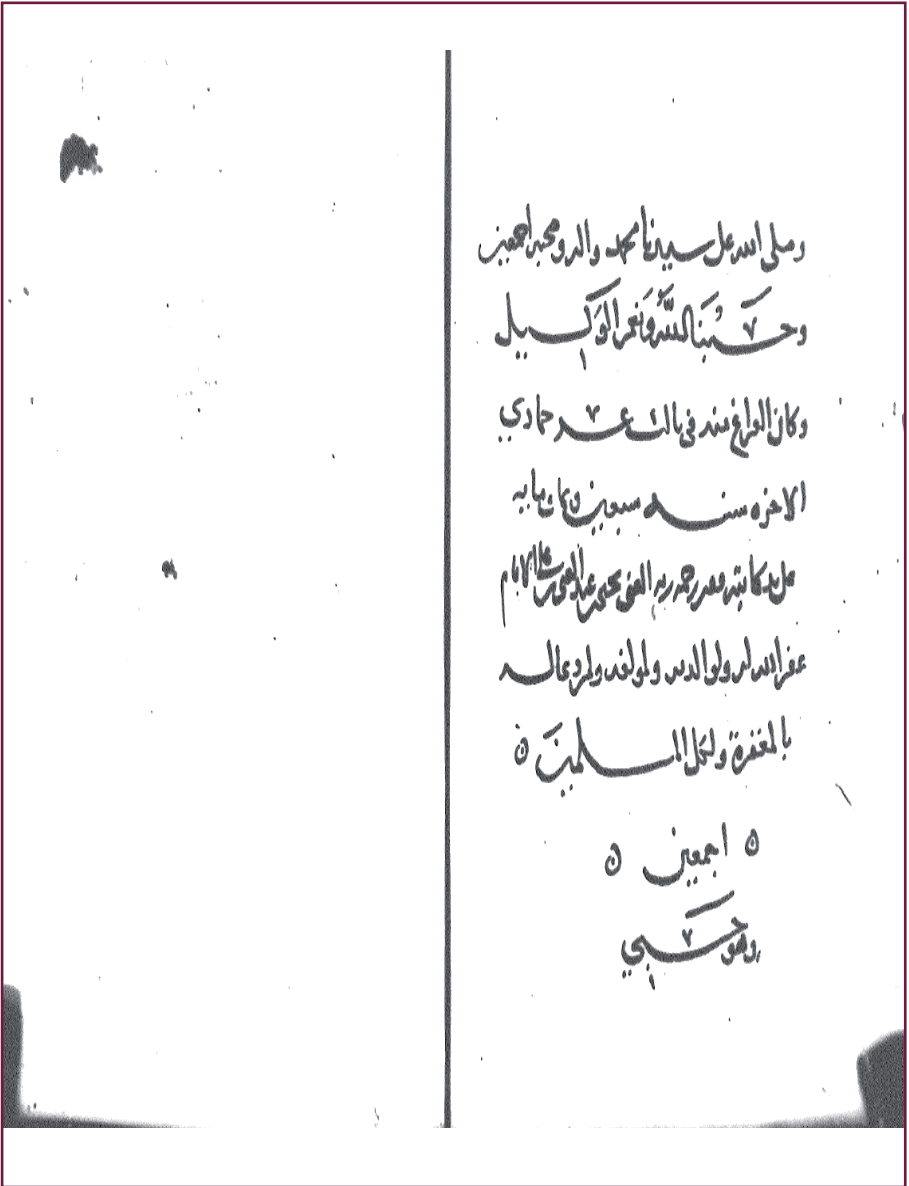 وصلى الله على سيدنا محمد واله وصحبه اجمعين
وحسبنا الله ونعم الوكيل
وكان الفراغ منه في ثالث عشر جمادي
الاخره سنه سبعين وثمان مايه
على يد كاتبه فقير رحمة ربه الغني يحيى
غفر الله له ولوالديه ولمولفه ولمن دعا له
بالمغفرة ولكل المسلمين ه
ه اجمعين ه
وهو حسبي